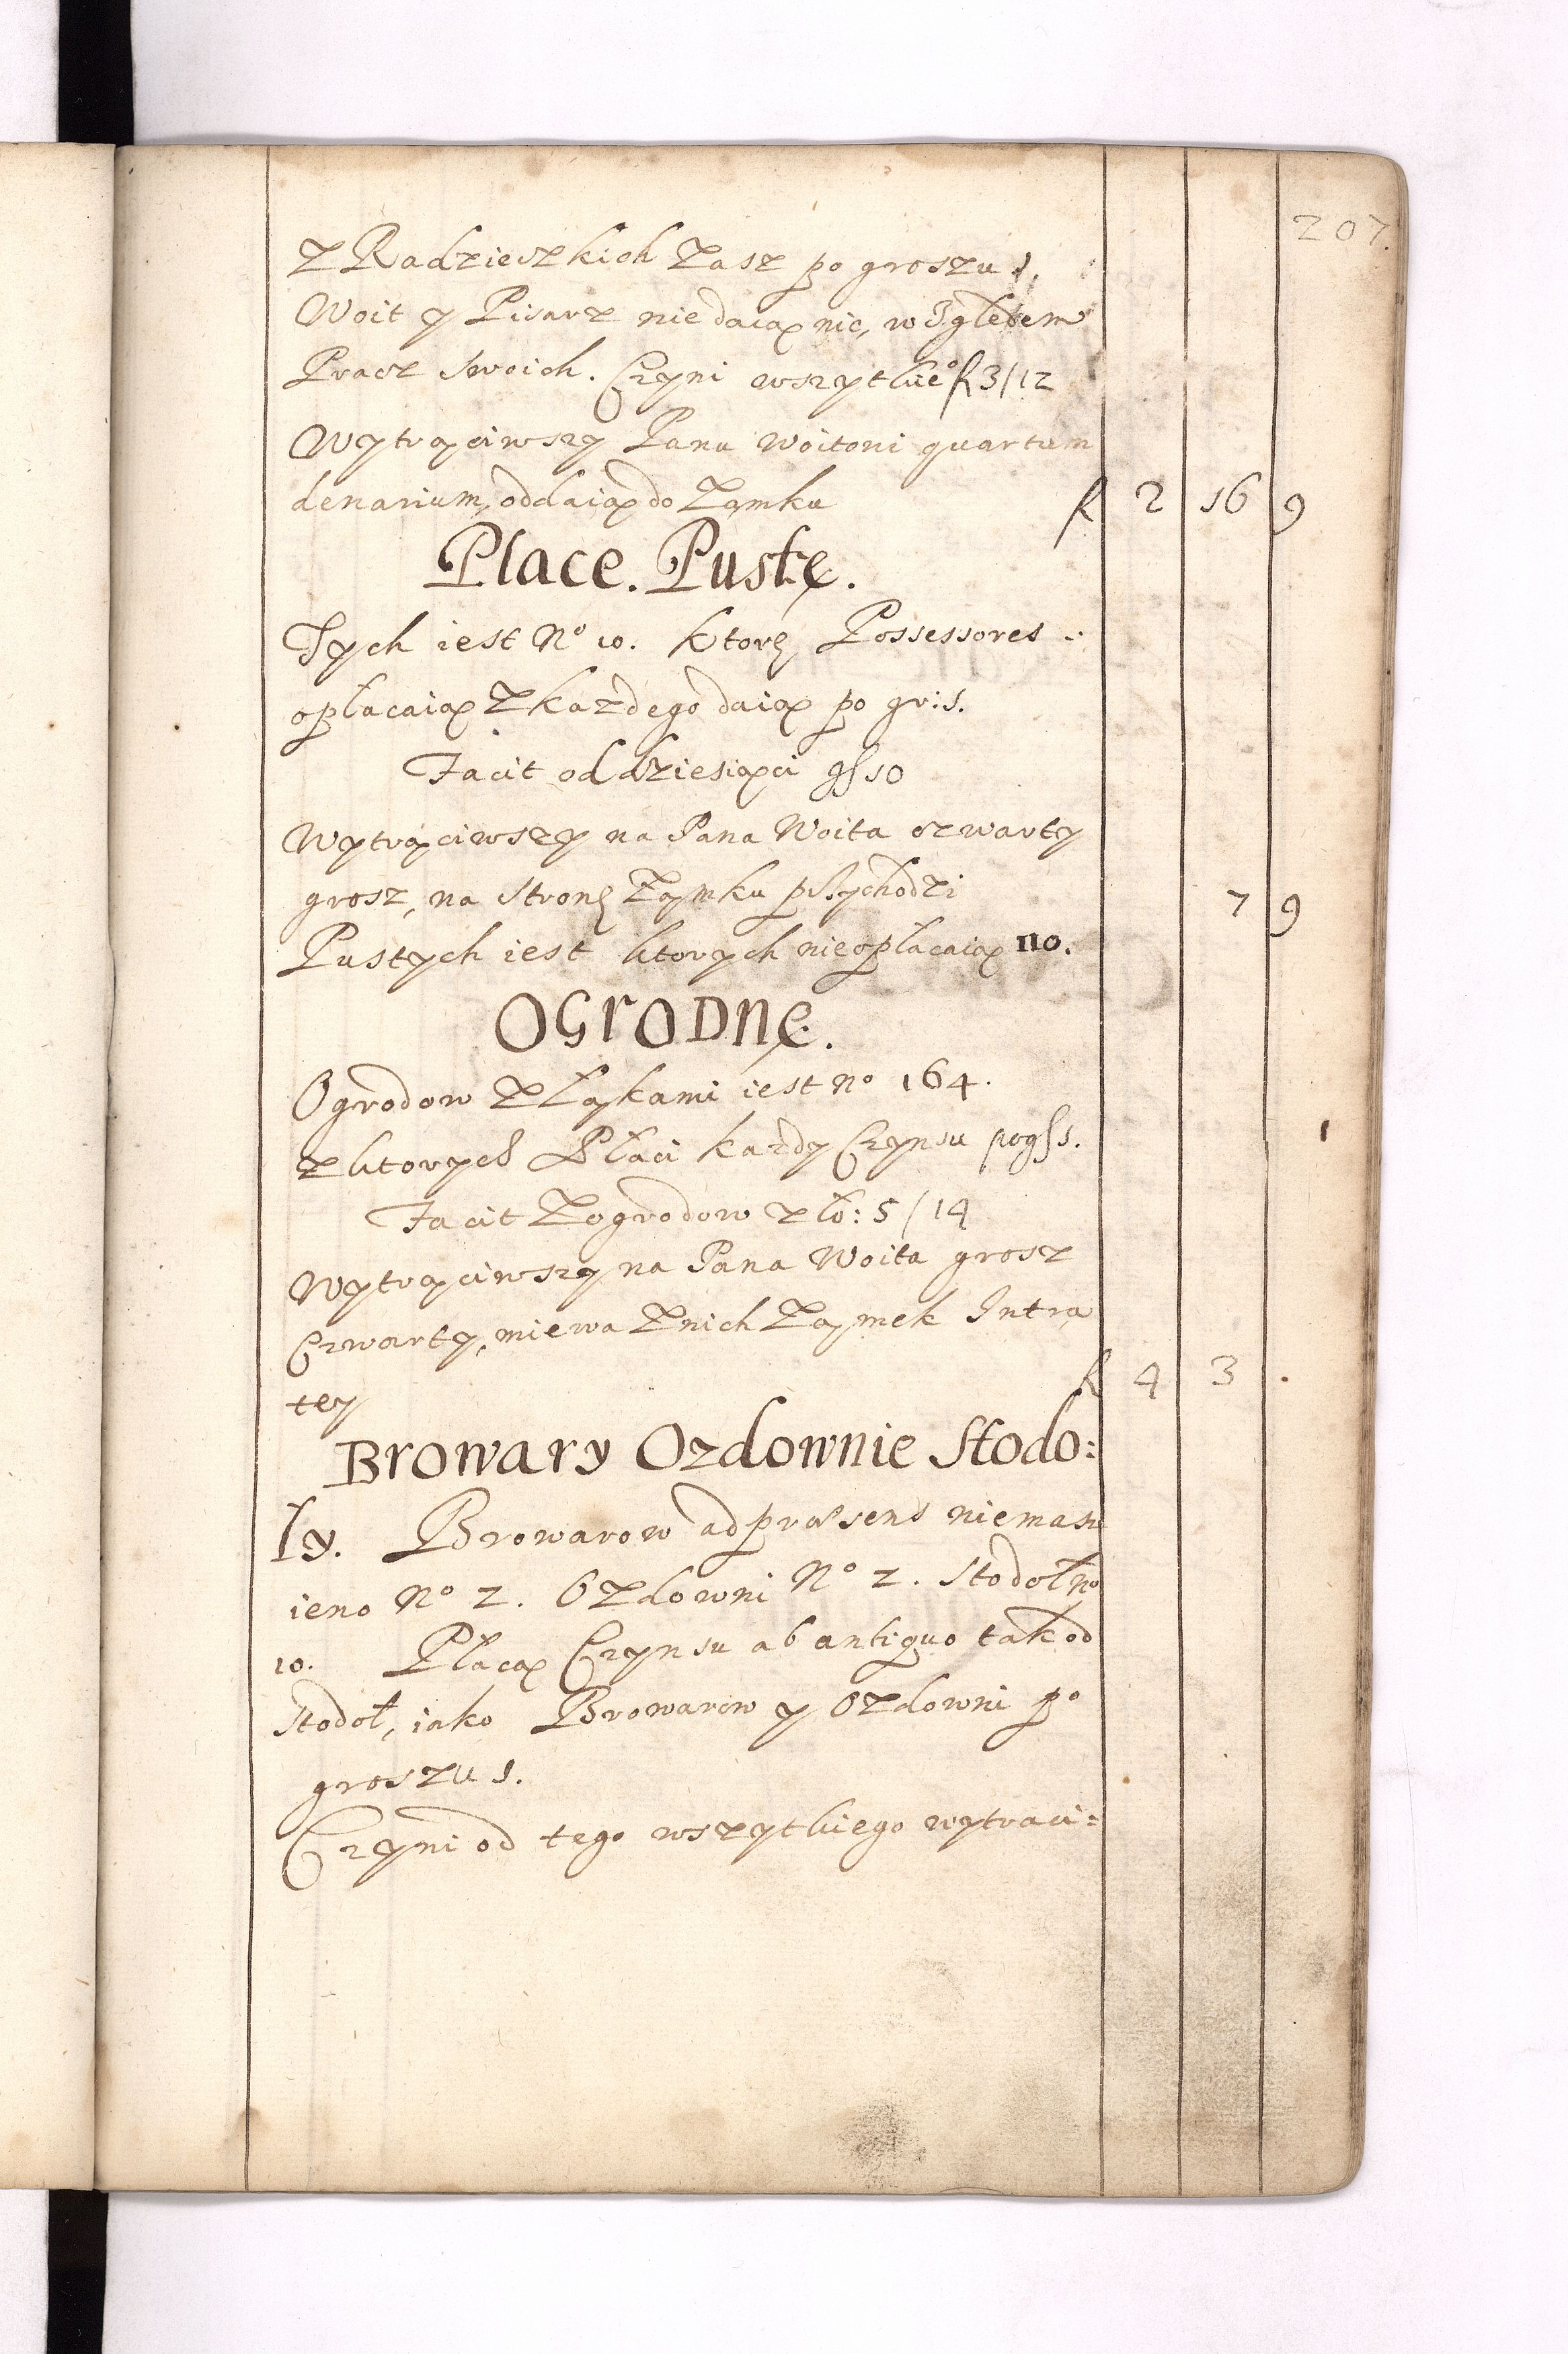 207.
Z Radzieczkich Zasz po groszu 1.
Woit y Pisarz nie daią nic, wzgledem
Pracz swoich. Czyni wszytkie° f 3/12
Wytrąciwszy Panu Woitoni quartum
denarium, oddaią do Zamku f 2 16 9
Place. Puste.
Tych iest No 10. ktore Possessores
opłacaią Z kazdego daią po gr: 1.
Facit od dziesiąci gs 10
Wytrąciwszy na Pana Woita czwarty
grosz, na strone Zamku pszychodzi 7 9
Pustych iest ktorych nieopłacaią no.
OGRODNE.
Ogrodow Z Ląkami iest no 164.
z ktorych Płaci kazdy Czynsu po gs 1.
Facit Z ogrodow zło: 5/14
Wytrąciwszy na Pana Woita grosz
Czwarty, miewa Z nich Zamek Intra
ty f 4 3 .
Browary Ozdownie Stodo:
ły. Browarow ad præsens niemasz
ieno No 2. Ozdowni No 2. Stodoł no
10. Płacą Czynsu ab antiquo tak od
Stodoł, iako Browarow y Ozdowni po
groszu 1.
Czyni od tego wszytkiego wytraci: